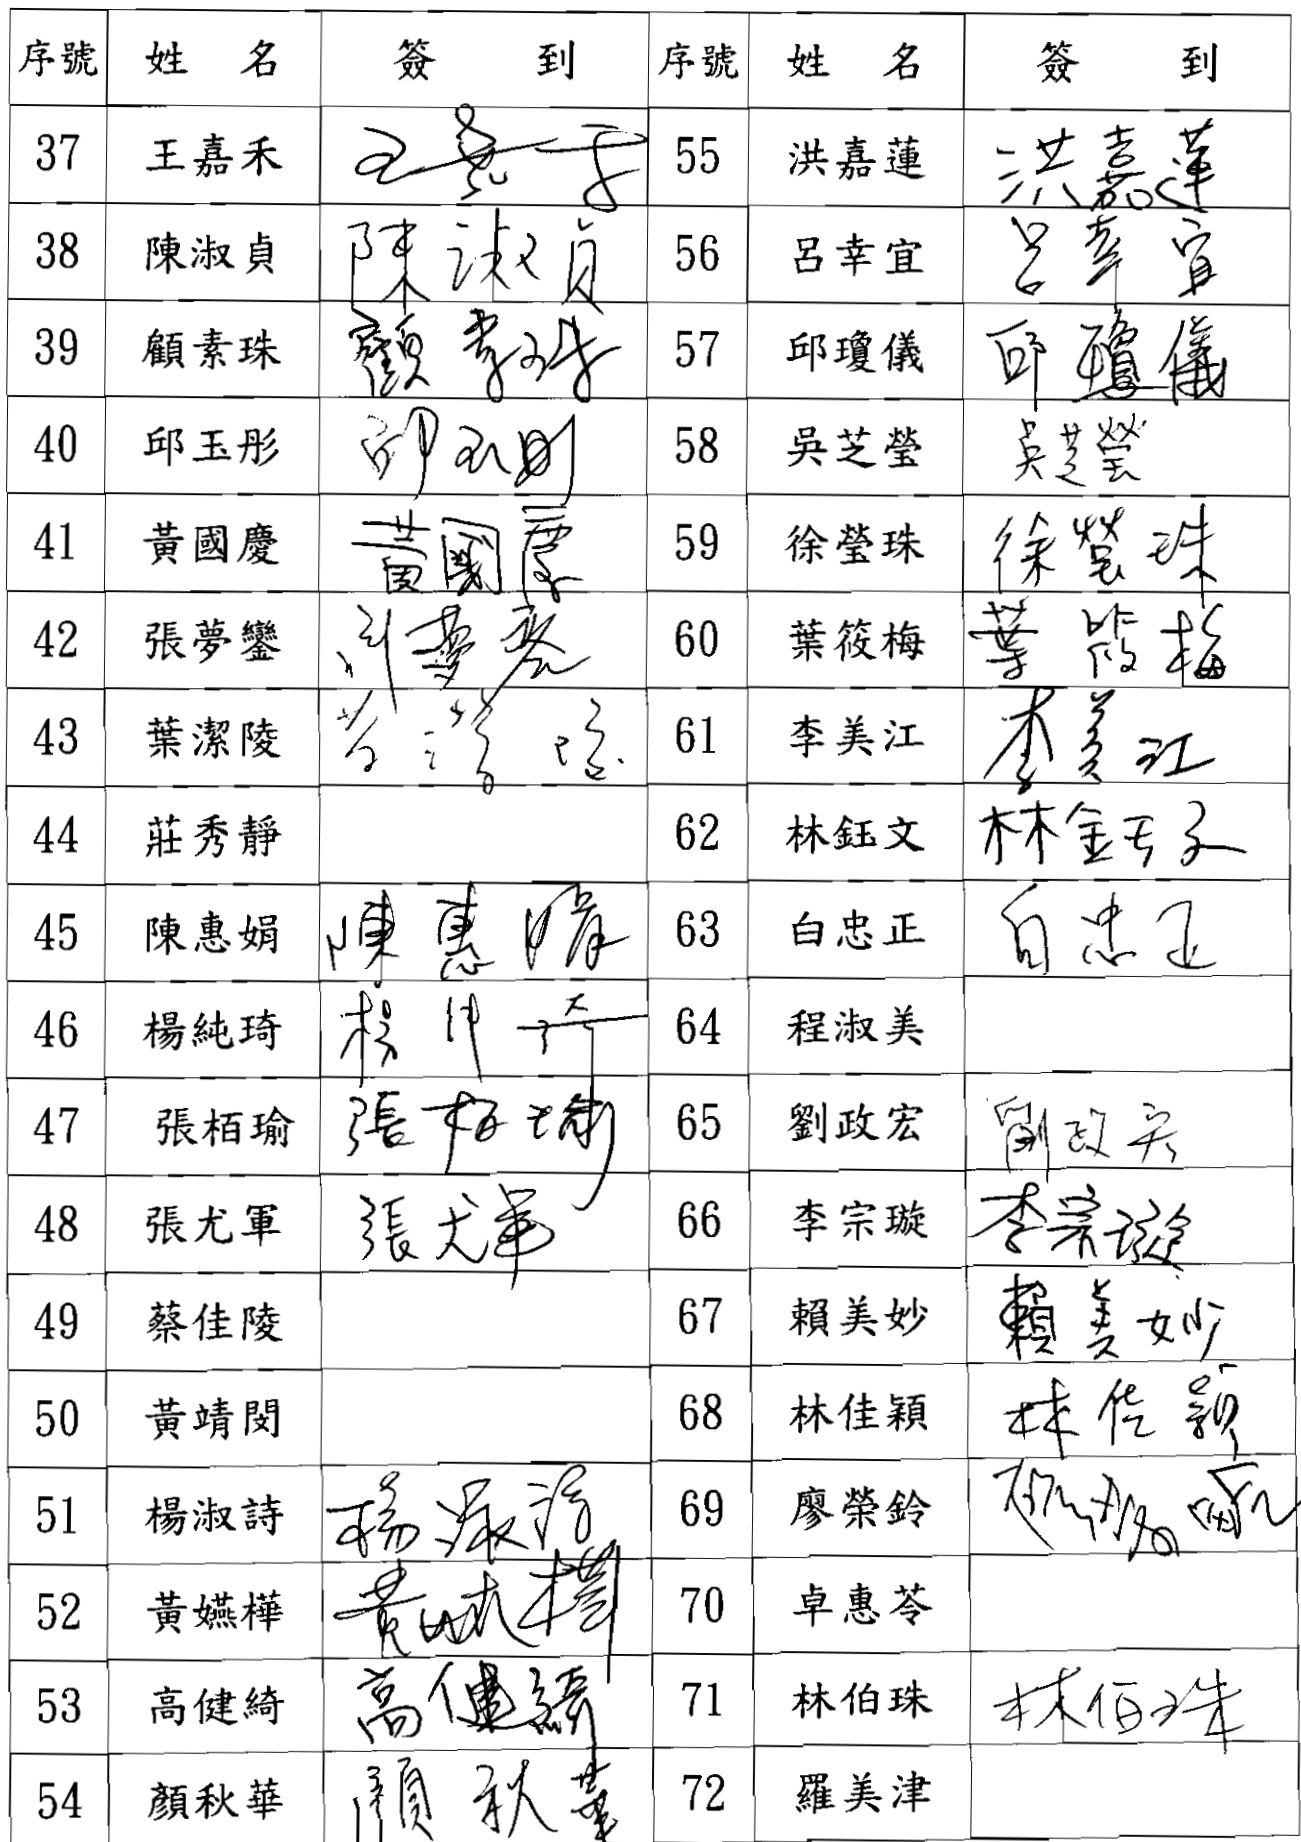 序號 姓名 簽到 序號 姓名 簽到
37 王嘉禾 王嘉禾 55 洪嘉蓮 洪嘉蓮
38 陳淑貞 陳淑貞 56 呂幸宜 呂幸宜
39 顧素珠 顧素珠 57 邱瓊儀 邱瓊儀
40 邱玉彤 邱玉彤 58 吳芝瑩 吳芝瑩
41 黃國慶 黃國慶 59 徐瑩珠 徐瑩珠
42 張夢鑾 張夢鑾 60 葉筱梅 葉筱梅
43 葉潔陵 61 李美江 李美江
44 莊秀靜 62 林鈺文 林鈺文
45 陳惠娟 陳惠娟 63 白忠正 白忠正
46 楊純琦 楊純琦 64 程淑美
47 張栢瑜 張栢瑜 65 劉政宏 劉政宏
48 張尤軍 張尤軍 66 李宗璇 李宗璇
49 蔡佳陵 67 賴美妙 賴美妙
50 黃靖閔 68 林佳穎 林佳穎
51 楊淑詩 楊淑詩 69 廖榮鈴
52 黃嬿樺 黃嬿樺 70 卓惠苓
53 高健綺 高健綺 71 林伯珠 林伯珠
54 顏秋華 顏秋華 72 羅美津